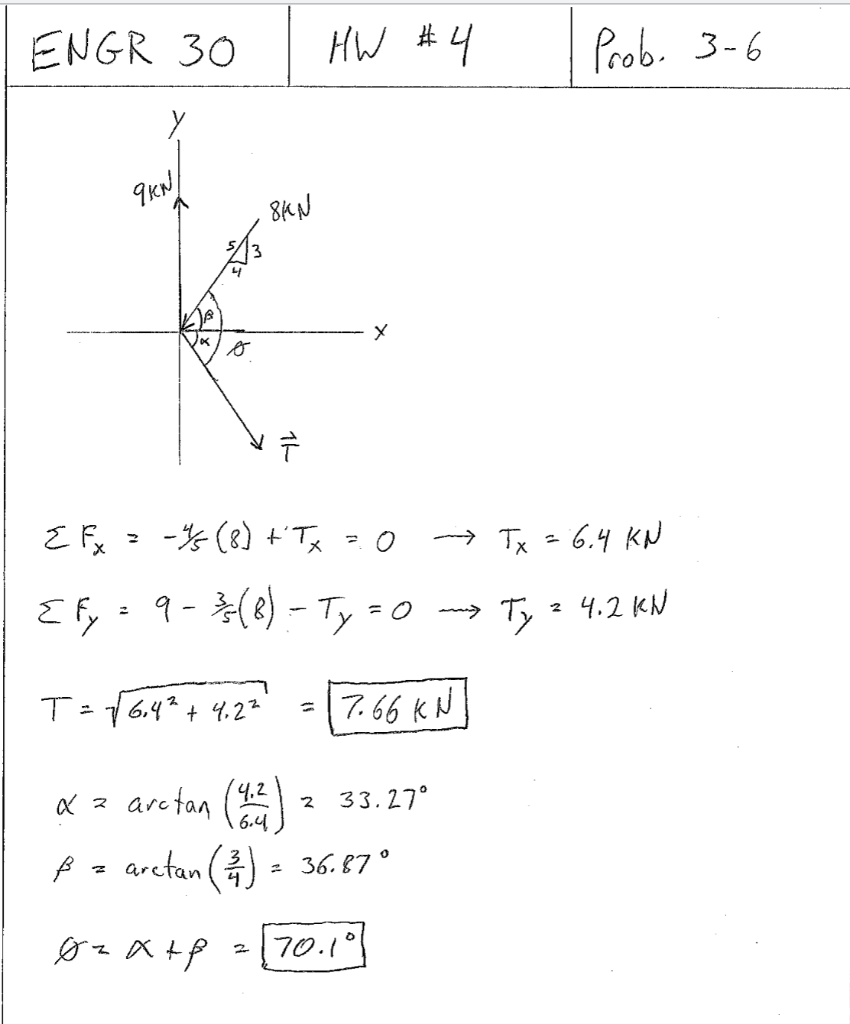 ENGR 30
HW #4
Prob. 3-6
y
9KN
8KN
5
3
4
β
α
θ
x
T⃗
Σ Fx = -4/5 (8) + Tx = 0 → Tx = 6.4 KN
Σ Fy = 9 - 3/5(8) - Ty = 0 → Ty = 4.2 KN
T = √6.4² + 4.2² = 7.66 KN
α = arctan (4.2/6.4) = 33.27°
β = arctan (3/4) = 36.87°
θ = α + β = 70.1°